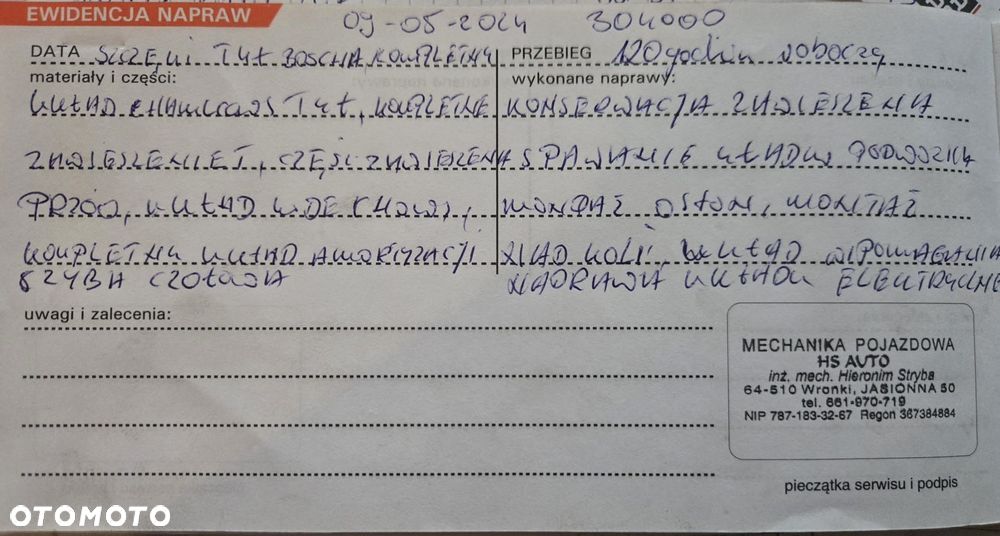 EWIDENCJA NAPRAW
09-05-2024 304000
DATA SZCZĘKI TYŁ BOSCHA KOMPLETNY
PRZEBIEG 120 godzin roboczą
materiały i części:
wykonane naprawy:
UKŁAD HAMULCOWY TYŁ, KOMPLETNE
KONSERWACJA ZAWIESZENIA
ZAWIESZENIE TYŁ, CZĘŚĆ ZAWIESZENIA
SPAWANIE UKŁADU
PRZÓD, UKŁAD WYDECHOWY,
MONTAŻ OSŁON, MONTAŻ
KOMPLETNY UKŁAD AMORTYZACJI
UKŁAD WSPOMAGANIA
SZYBA CZOŁOWA
NAPRAWA UKŁADU ELEKTRYCZNE
uwagi i zalecenia:
MECHANIKA POJAZDOWA
HS AUTO
inż. mech. Hieronim Stryba
64-510 Wronki, JASIONNA 50
tel. 661-970-719
NIP 787-183-32-67 Regon 367384884
pieczątka serwisu i podpis
OTOMOTO